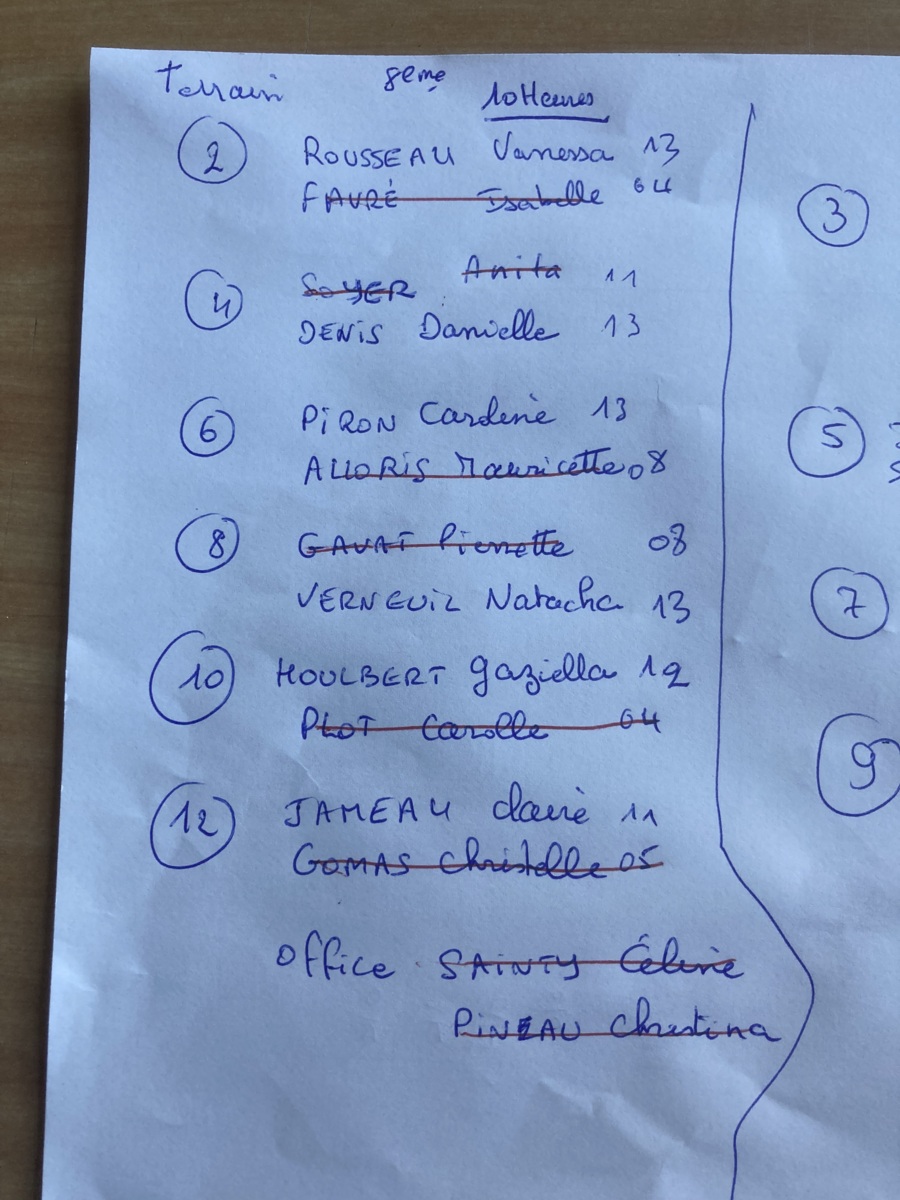 Terrain 8eme
10 Heures
2 ROUSSEAU Vanessa 13
FAVRÉ Isabelle 04
4 SOYER Anita 11
DENIS Danielle 13
6 PIRON Carderie 13
ALLORIS Mauricette 08
8 GAVAT Pierrette 08
VERNEUIL Natacha 13
10 HOULBERT gaziella 12
PLOT Carolle 04
12 JAMEAU claire 11
GOMAS Christelle 05
Office SAINTY Céline
PINEAU Christina
3
5
7
9